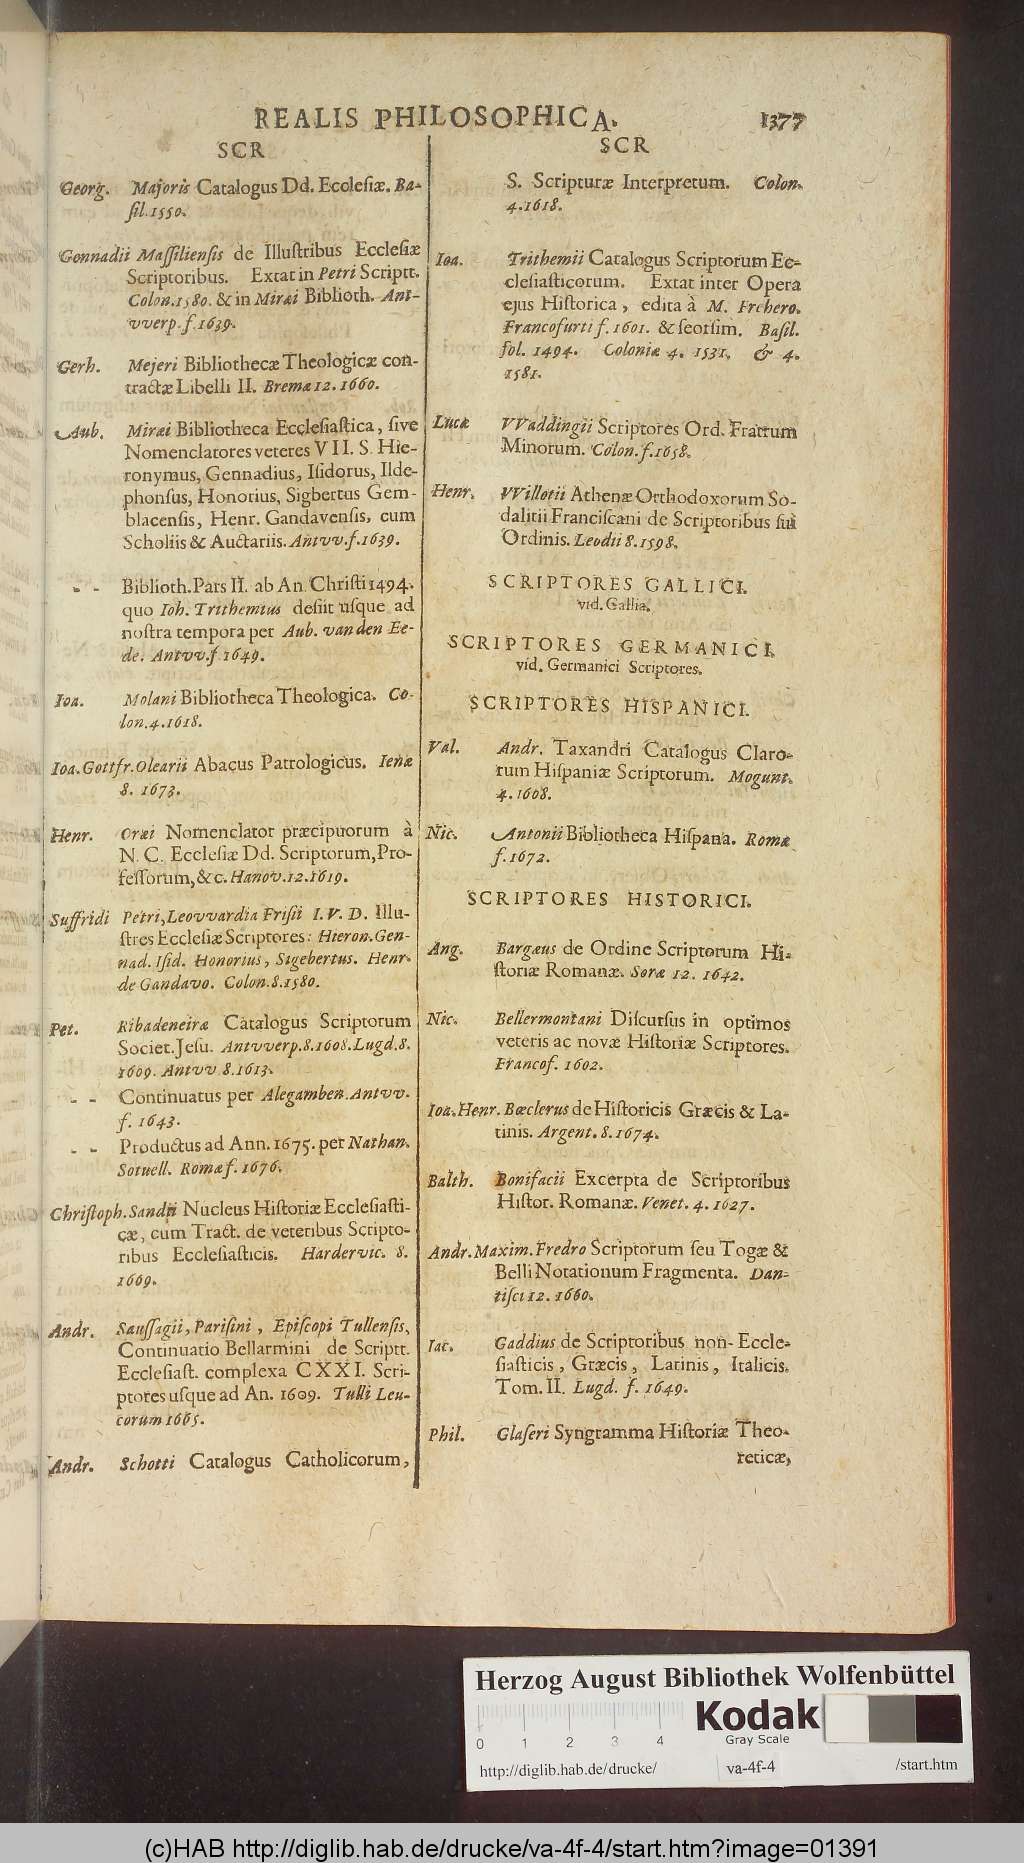 REALIS PHILOSOPHICA. 1377
SCR
Georg. Majoris Catalogus Dd. Ecclesiæ. Ba-
sil. 1550.
Gennadii Massiliensis de Illustribus Ecclesiæ
Scriptoribus. Extat in Petri Scriptt.
Colon. 1580. & in Miræi Biblioth. Ant-
vverp. f. 1639.
Gerh. Mejeri Bibliothecæ Theologicæ con-
tractæ Libelli II. Bremæ 12. 1660.
Aub. Miræi Bibliotheca Ecclesiastica, sive
Nomenclatores veteres VII. S. Hie-
ronymus, Gennadius, Isidorus, Ilde-
phonsus, Honorius, Sigbertus Gem-
blacensis, Henr. Gandavensis, cum
Scholiis & Auctariis. Antvv. f. 1639.
- - Biblioth. Pars II. ab An. Christi 1494.
quo Ioh. Trithemius desiit usque ad
nostra tempora per Aub. van den Ee-
de. Antvv. f. 1649.
Ioa. Molani Bibliotheca Theologica. Co-
lon. 4. 1618.
Ioa. Gottfr. Olearii Abacus Patrologicus. Ienæ
8. 1673.
Henr. Oræi Nomenclator præcipuorum à
N. C. Ecclesiæ Dd. Scriptorum, Pro-
fessorum, & c. Hanov. 12. 1619.
Suffridi Petri, Leovvardia Frisii I. V. D. Illu-
stres Ecclesiæ Scriptores: Hieron. Gen-
nad. Isid. Honorius, Sigebertus. Henr.
de Gandavo. Colon. 8. 1580.
Pet. Ribadeneiræ Catalogus Scriptorum
Societ. Jesu. Antvverp. 8. 1608. Lugd. 8.
1609. Antvv 8. 1613.
- - Continuatus per Alegamben. Antvv.
f. 1643.
- - Productus ad Ann. 1675. per Nathan.
Sotuell. Romæ f. 1676.
Christoph. Sandii Nucleus Historiæ Ecclesiasti-
cæ, cum Tract. de veteribus Scripto-
ribus Ecclesiasticis. Hardervic. 8.
1669.
Andr. Saussagii, Parisini, Episcopi Tullensis,
Continuatio Bellarmini de Scriptt.
Ecclesiast. complexa CXXI. Scri-
ptores usque ad An. 1609. Tulli Leu-
corum 1665.
Andr. Schotti Catalogus Catholicorum,
SCR
S. Scripturæ Interpretum. Colon.
4. 1618.
Ioa. Trithemii Catalogus Scriptorum Ec-
clesiasticorum. Extat inter Opera
ejus Historica, edita à M. Frehero.
Francofurti f. 1601. & seorsim. Basil.
fol. 1494. Coloniæ 4. 1531. & 4.
1581.
Lucæ VVaddingii Scriptores Ord. Fratrum
Minorum. Colon. f. 1658.
Henr. VVillotii Athenæ Orthodoxorum So-
dalitii Franciscani de Scriptoribus sui
Ordinis. Leodii 8. 1598.
SCRIPTORES GALLICI.
vid. Gallia.
SCRIPTORES GERMANICI.
vid. Germanici Scriptores.
SCRIPTORES HISPANICI.
Val. Andr. Taxandri Catalogus Claro-
rum Hispaniæ Scriptorum. Mogunt.
4. 1608.
Nic. Antonii Bibliotheca Hispana. Romæ
f. 1672.
SCRIPTORES HISTORICI.
Ang. Bargæus de Ordine Scriptorum Hi-
storiæ Romanæ. Soræ 12. 1642.
Nic. Bellermontani Discursus in optimos
veteris ac novæ Historiæ Scriptores.
Francof. 1602.
Ioa. Henr. Bœclerus de Historicis Græcis & La-
tinis. Argent. 8. 1674.
Balth. Bonifacii Excerpta de Scriptoribus
Histor. Romanæ. Venet. 4. 1627.
Andr. Maxim. Fredro Scriptorum seu Togæ &
Belli Notationum Fragmenta. Dan-
tisci 12. 1660.
Iac. Gaddius de Scriptoribus non-Eccle-
siasticis, Græcis, Latinis, Italicis.
Tom. II. Lugd. f. 1649.
Phil. Glaseri Syngramma Historiæ Theo-
reticæ,
Herzog August Bibliothek Wolfenbüttel
Kodak
Gray Scale
0 1 2 3 4
http://diglib.hab.de/drucke/ va-4f-4 /start.htm
(c)HAB http://diglib.hab.de/drucke/va-4f-4/start.htm?image=01391